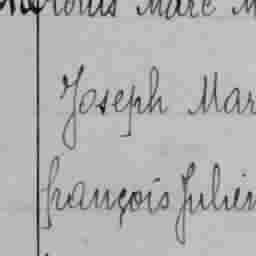 Louis Marc M
Joseph Mar
françois Julien